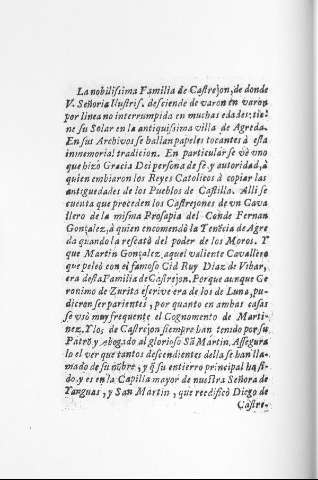 La nobilissima Familia de Castrejon, de donde
V. Señoria Ilustris. desciende de varon en varon
por linea no interrumpida en muchas edades, tie-
ne su Solar en la antiquissima villa de Agreda.
En sus Archivos se hallan papeles tocantes à esta
inmemorial tradicion. En particular se vè uno
que hizò Gracia Dei persona de fè, y autoridad, à
quien embiaron los Reyes Catolicos à copiar las
antiguedades de los Pueblos de Castilla. Alli se
cuenta que proceden los Castrejones de un Cava
llero de la misma Prosapia del Conde Fernan
Gonçalez, à quien encomendò la Tenēcia de Agre
da quando la rescatò del poder de los Moros. Y
que Martin Gonçalez, aquel valiente Cavallero
que peleò con el famoso Cid Ruy Diaz de Vibar,
era desta Familia de Castrejon. Porque aunque Ge
ronimo de Zurita escrive era de los de Luna, pu-
dieron ser parientes, por quanto en ambas casas
se usò muy frequente el Cognomento de Marti-
nez. Y los de Castrejon siempre han tenido por su
Patrō y abogado al glorioso Sā Martin. Assegura
lo el ver que tantos descendientes della se han lla-
mado de su nōbre, y q̄ su entierro principal ha si-
do, y es en la Capilla mayor de nuestra Señora de
Yanguas, y San Martin, que reedificò Diego de
Castre-